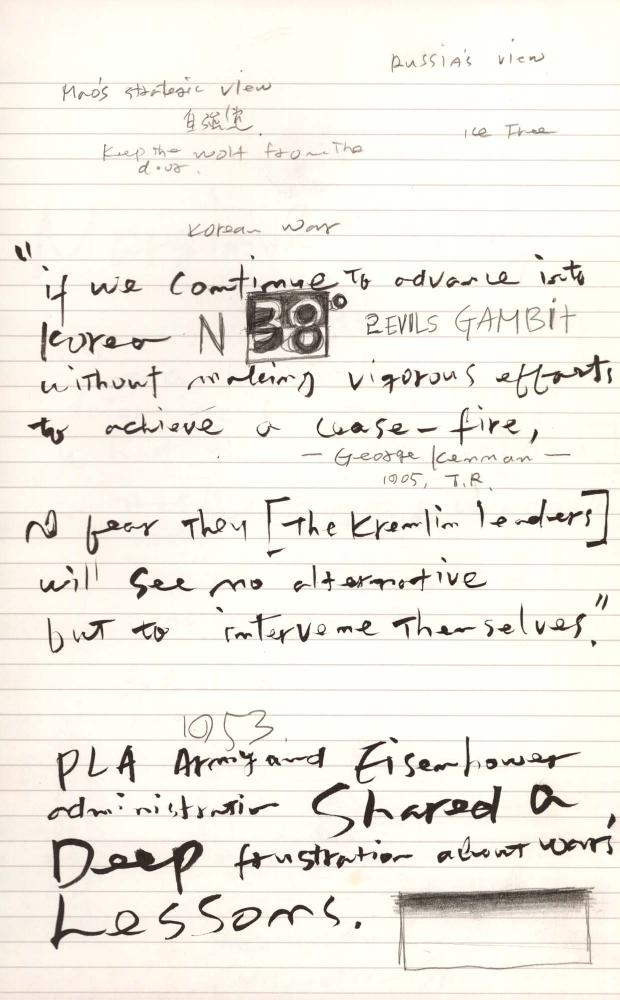 Russia's view
Mao's strategic view
自強党.
Keep the wolf from the
door.
ice Free
Korean War
"if we continue to advance into
Korea N 38°
DEVILS GAMBIT
without making vigorous efforts
to achieve a cease-fire,
— George Kennan —
1905, T.R.
I fear they [the Kremlin leaders]
will see no alternative
but to intervene Themselves."
1953
PLA Army and Eisenhower
administration Shared a
Deep frustration about war's
Lessons.